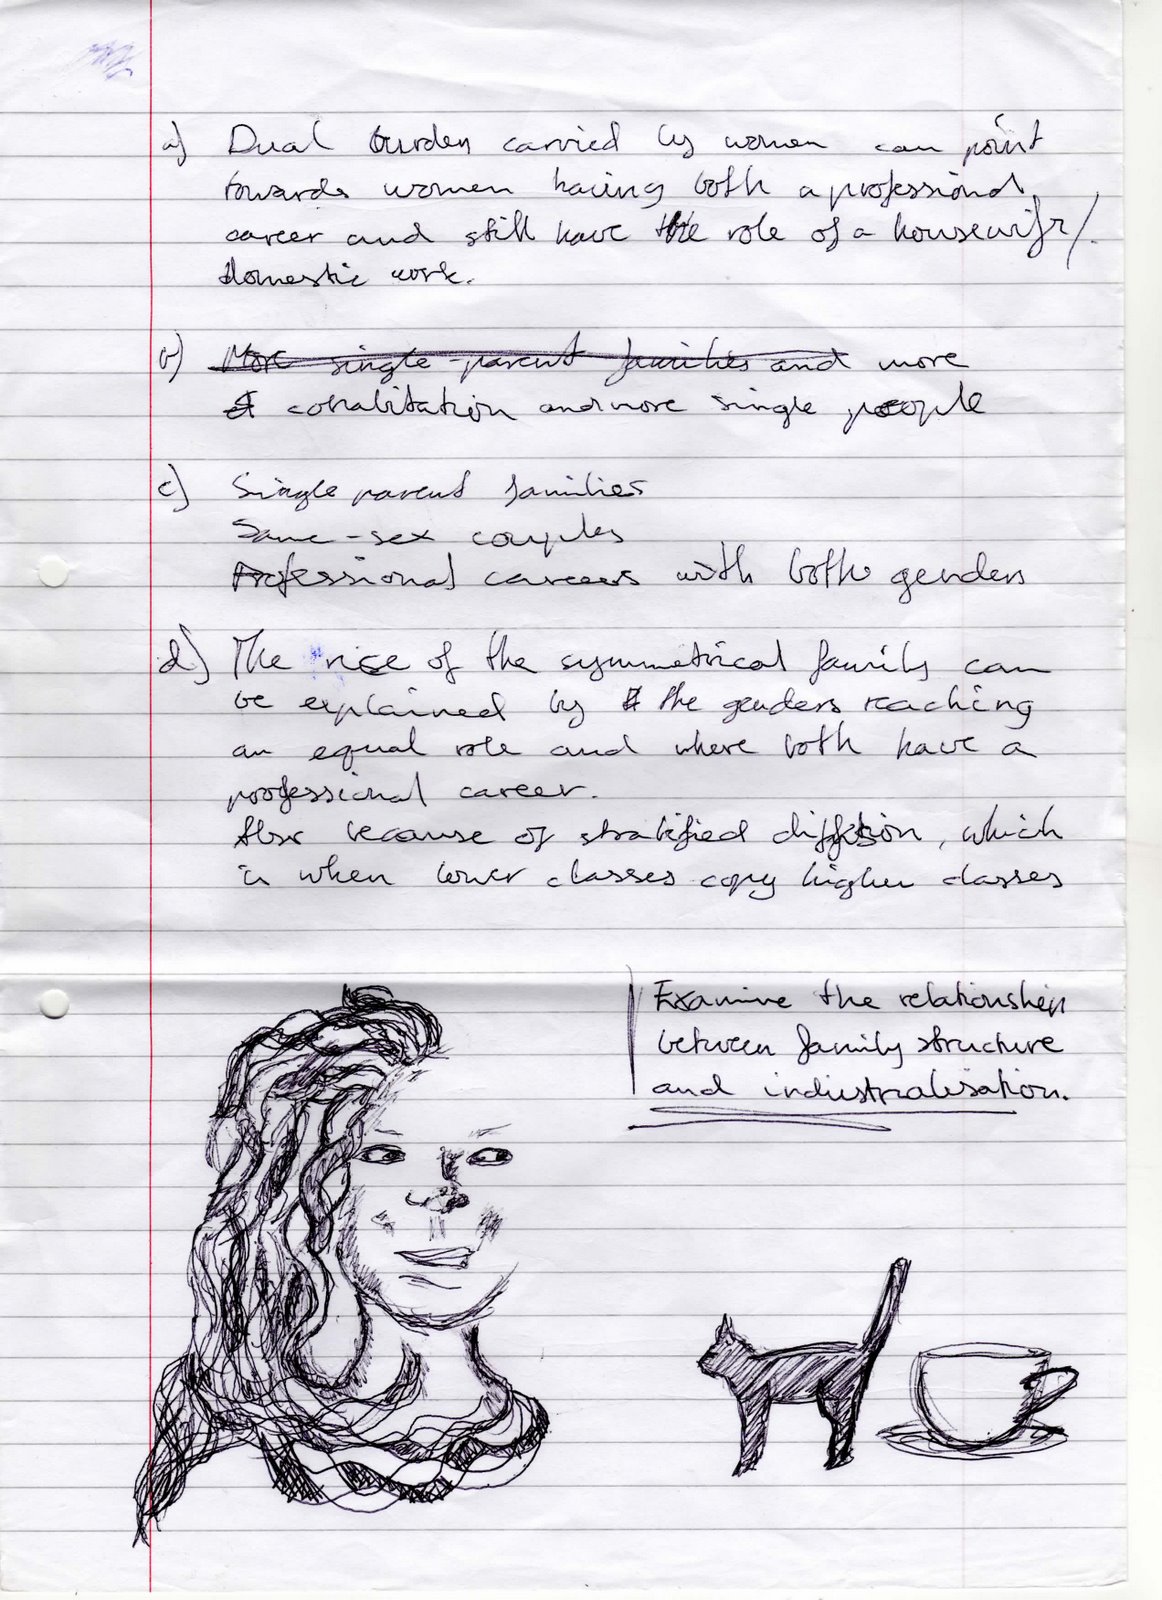 a) Dual burden carried by women can point
towards women having both a professional
career and still have the role of a housewife/.
domestic work.
b) More single-parent families and more
cohabitation and more single people
c) Single parent families
Same-sex couples
Professional careers with both genders
d) The rise of the symmetrical family can
be explained by the genders reaching
an equal role and where both have a
professional career.
Also because of stratified diffusion, which
is when lower classes copy higher classes
Examine the relationship
between family structure
and industrialisation.